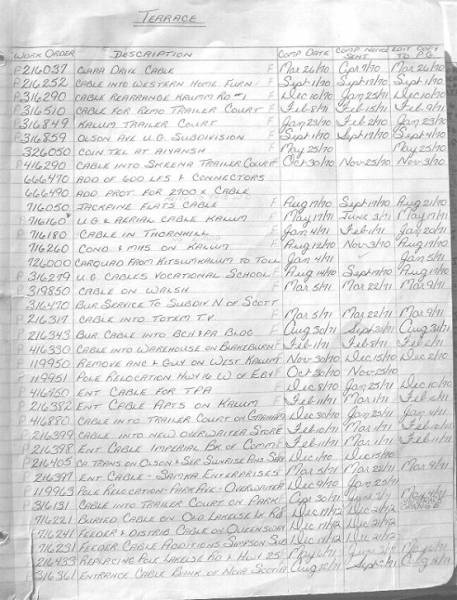 TERRACE
WORK ORDER DESCRIPTION COMP DATE COMP NOTICE SENT
P 216037 CLARA DRIVE CABLE F Mar 26/70 Apr 9/70 Mar 26/70
P 216252 CABLE INTO WESTERN HOME FURN F Sept 1/70 Sept 17/70 Sept 1/70
P 316290 CABLE REARRANGE KALUM RD #1 F Dec 10/70 Jan 25/71 Dec 10/70
P 316510 CABLE FOR REMO TRAILER COURT F Feb 8/71 Feb 15/71 Feb 9/71
P 316849 KALUM TRAILER COURT F Jan 23/70 Feb 2/70 Jan 23/70
P 316859 OLSON AVE U.G. SUBDIVISION F Sept 1/70 Sept 17/70 Sept 4/70
326050 COIN TEL AT AIYANSH May 25/70 May 25/70
P 416290 CABLE INTO SKEENA TRAILER COURT F Oct 30/70 Nov 25/70 Nov 3/70
666470 ADD OF 600 LFS & CONNECTORS
666490 ADD PROT. FOR 2700 X CABLE
P 716050 JACKPINE FLATS CABLE F Aug 17/70 Sept 17/70 Aug 21/70
P 716160 U.G & AERIAL CABLE KALUM F May 17/71 June 3/71 May 17/71
P 716180 CABLE IN THORNHILL F Jan 4/71 Feb 1/71 Jan 20/71
716260 COND & MHS ON KALUM F Aug 12/70 Nov 3/70 Aug 17/70
726000 CARQUAD FROM KITSUMKALUM TO TOLL Jan 4/71 Jan 5/71
P 316279 U.G CABLES VOCATIONAL SCHOOL F Aug 14/70 Sept 17/70 Aug 17/70
P 319850 CABLE ON WALSH F Mar 5/71 Mar 22/71 Mar 9/71
316470 BUR SERVICE TO SUBDIV N OF SCOTT
P 216317 CABLE INTO TOTEM T.V. F Mar 5/71 Mar 22/71 Mar 9/71
P 216343 BUR CABLE INTO BCH & PA BLDG F Aug 30/71 Sept 30/71 Aug 31/71
P 416330 CABLE INTO WAREHOUSE ON BLAKEBURN F Feb 1/71 Feb 8/71 Feb 2/71
P 119950 REMOVE ANC & GUY ON WEST KALUM F Nov 30/70 Dec 15/70 Dec 2/70
119951 POLE RELOCATION HWY 16 W OF EBY F Oct 30/70 Nov 25/70
P 416450 ENT CABLE FOR TPA F Dec 8/70 Jan 25/71 Dec 10/70
P 216382 ENT CABLE APTS ON KALUM F Feb 11/71 Mar 1/71 Feb 11/71
P 416880 CABLE INTO TRAILER COURT ON GRAHAM Dec 30/70 Jan 25/71 Jan 4/71
P 216399 CABLE INTO NEW OVERWAITEA STORE F Feb 10/71 Mar 1/71 Feb 11/71
P 216398 ENT. CABLE IMPERIAL BK OF COMM F Feb 11/71 Mar 1/71 Feb 11/71
P 216405 CA TRANS ON OLSON & SUNRISE Dec 1/70 Dec 15/70
P 216397 ENT CABLE - SAMRA ENTERPRISES Mar 5/71 Mar 22/71 Mar 9/71
P 119963 POLE RELOCATION - PARK AVE - OVERWAITEA Dec 9/70 Jan 25/71
P 316131 CABLE INTO TRAILER COURT ON PARK F Apr 30/71
716221 BURIED CABLE ON OLD LAKELSE LK RD Dec 11/72 Dec 21/72
P 716241 FEEDER & DISTRIB CABLE ON QUEENSWAY Dec 11/72 Dec 21/72
716231 FEEDER CABLE ADDITIONS SIMPSON SUB Dec 11/72 Dec 21/72
216433 REPLACING POLE LAKELSE RD & HWY 25
P 316361 ENTRANCE CABLE BANK OF NOVA SCOTIA